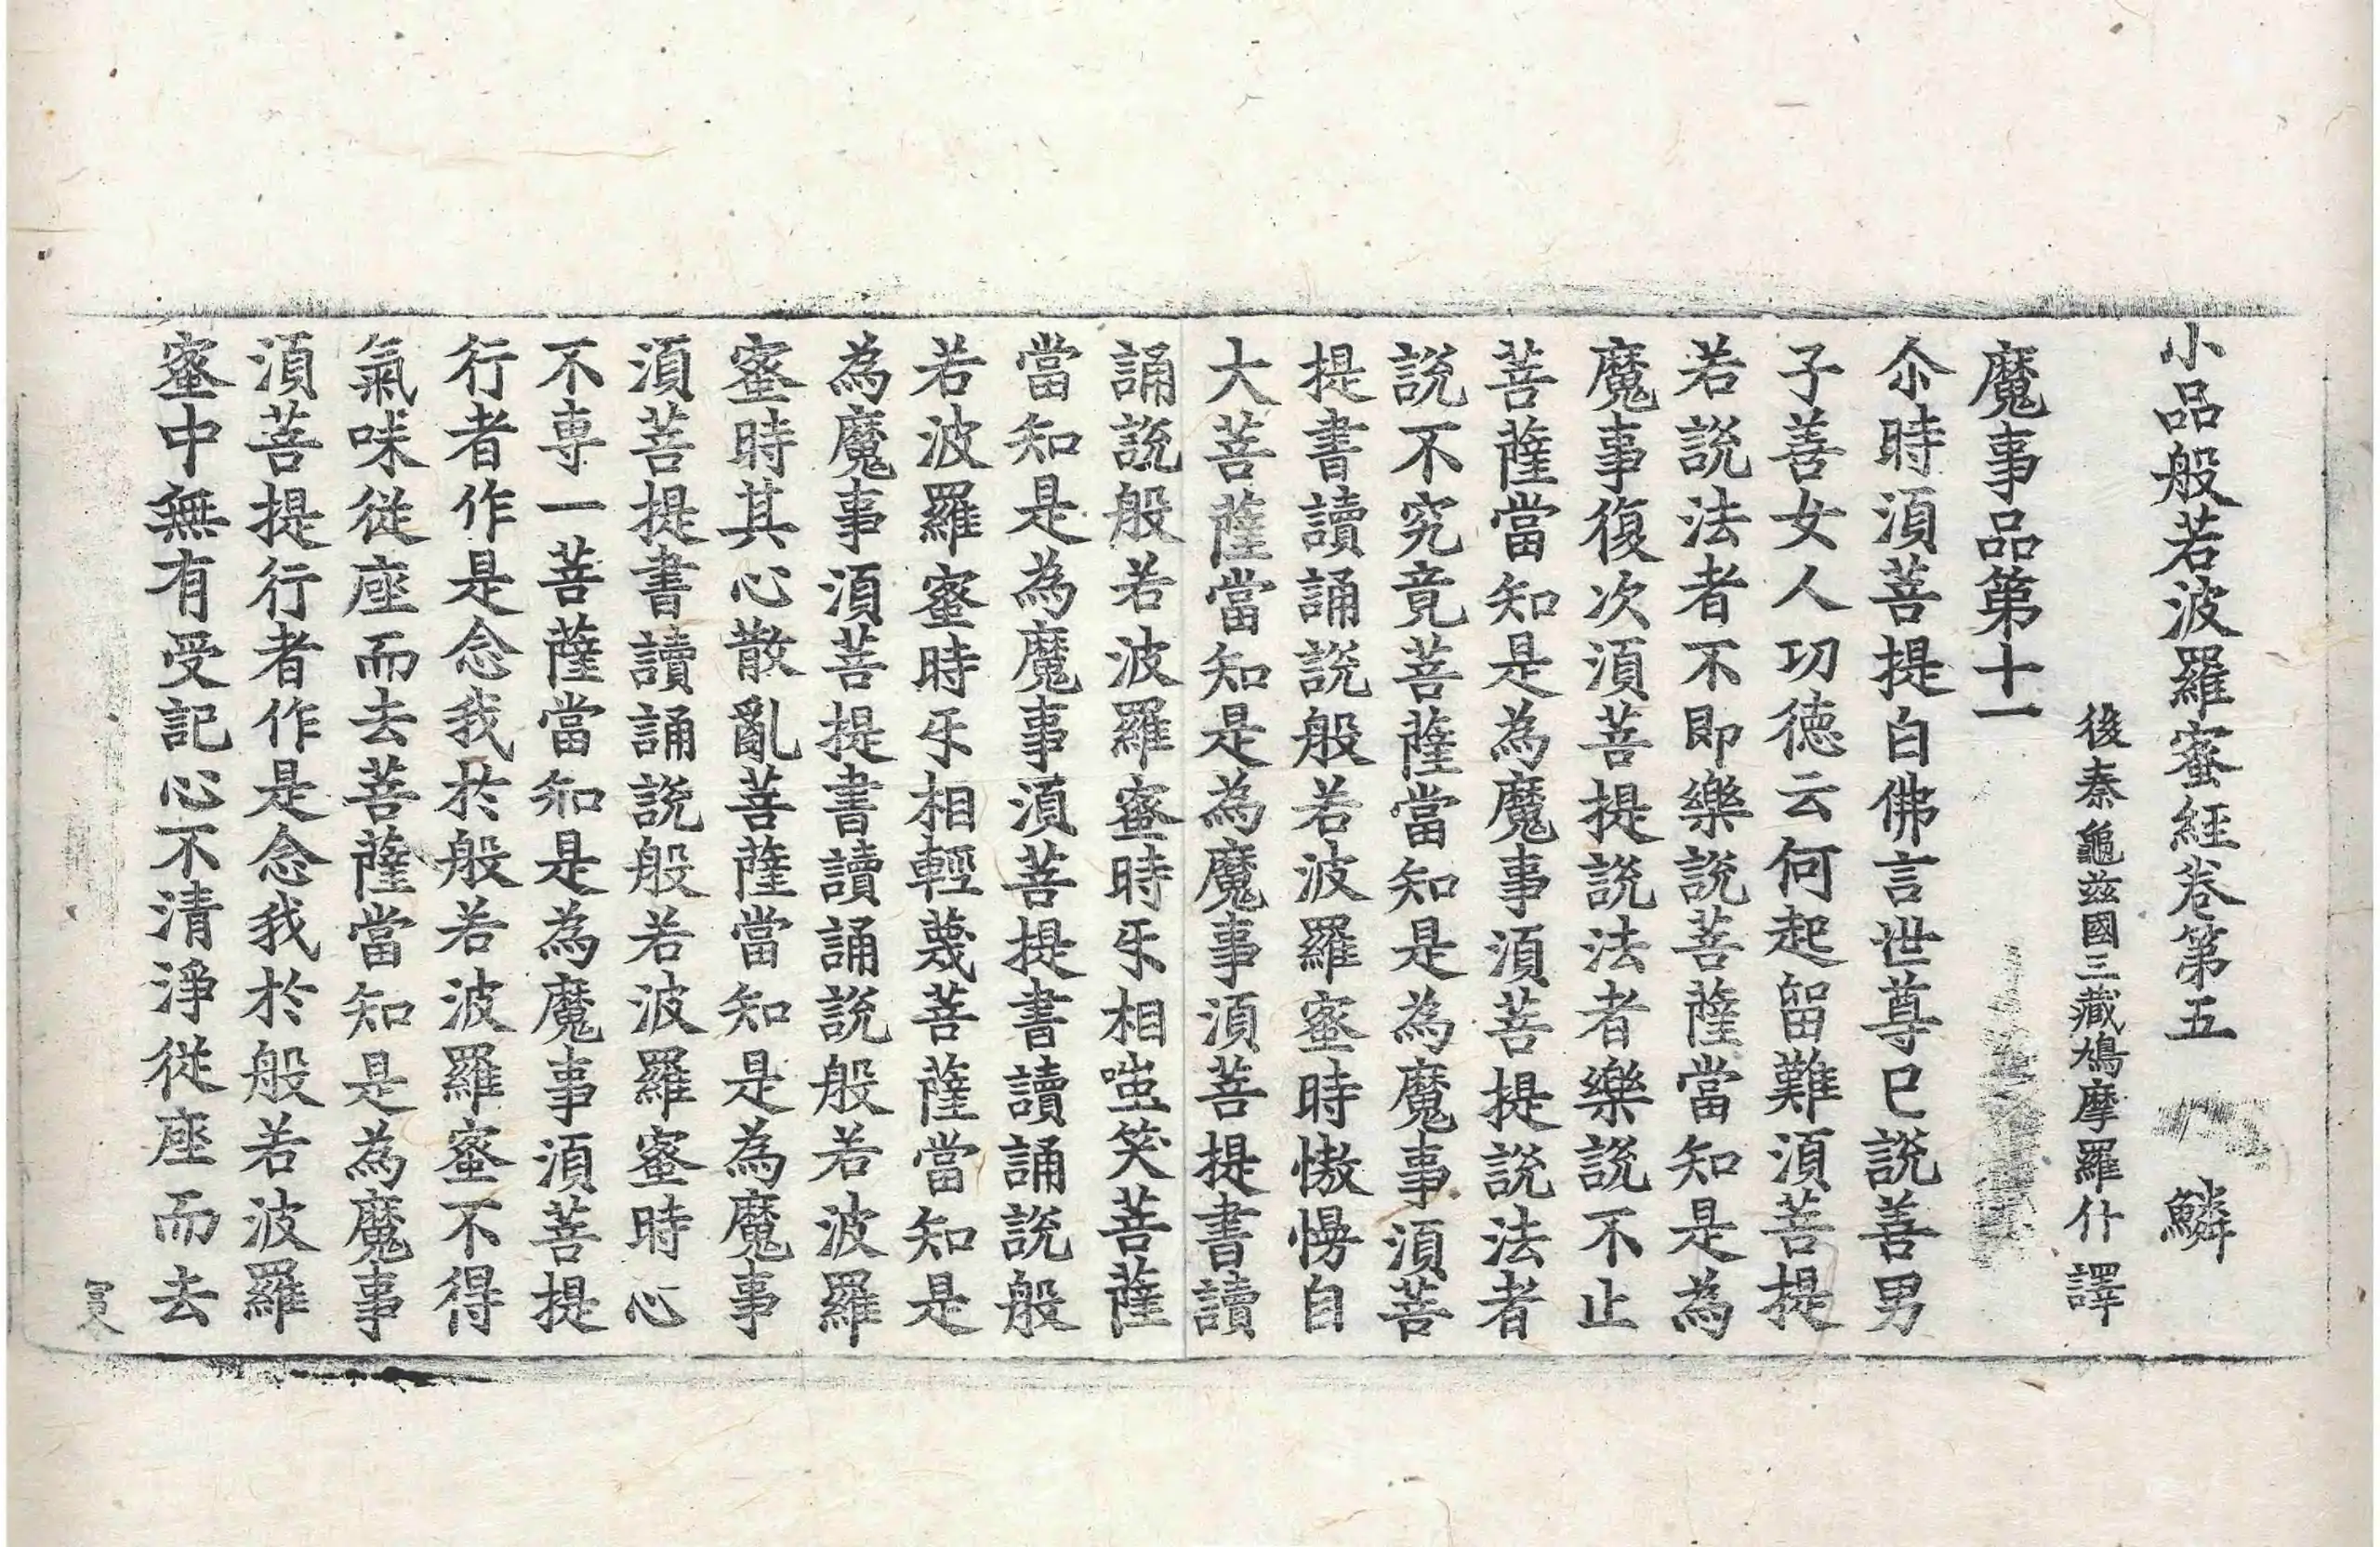 小品般若波羅蜜經卷第五 鱗
後秦龜玆國三藏鳩摩羅什譯
魔事品第十一
尒時須菩提白佛言世尊已說善男
子善女人功德云何起留難須菩提
若說法者不即樂說菩薩當知是為
魔事復次須菩提說法者樂說不止
菩薩當知是為魔事須菩提說法者
說不究竟菩薩當知是為魔事須菩
提書讀誦說般若波羅蜜時慠慢自
大菩薩當知是為魔事須菩提書讀
誦說般若波羅蜜時㸦相嗤笑菩薩
當知是為魔事須菩提書讀誦說般
若波羅蜜時㸦相輕蔑菩薩當知是
為魔事須菩提書讀誦說般若波羅
蜜時其心散亂菩薩當知是為魔事
須菩提書讀誦說般若波羅蜜時心
不專一菩薩當知是為魔事須菩提
行者作是念我於般若波羅蜜不得
氣味從座而去菩薩當知是為魔事
須菩提行者作是念我於般若波羅
蜜中無有受記心不清淨從座而去